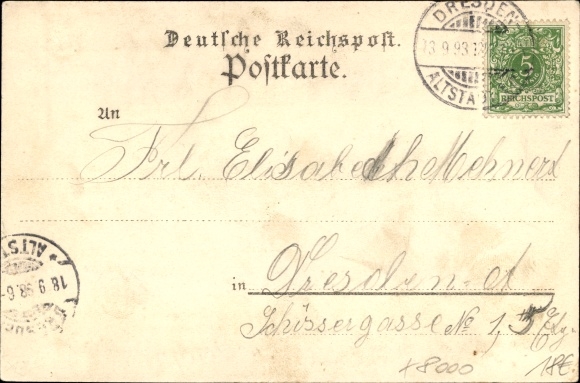 Deutsche Reichspost.
Postkarte.
DRESDEN
9.98
ALTSTA
5
REICHSPOST
An
Frl. Elisabeth Mehnert
in Dresden-A
Schössergasse No 1, 5 Etg.
ALTST
18 9 98 6-
+8000
18€